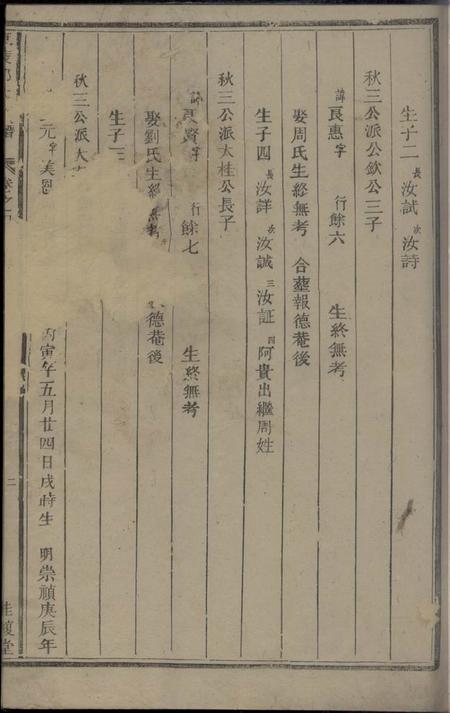 生子二 長汝試 次汝詩
秋三公派公欽公三子
諱良惠字 行餘六 生終無考
娶周氏生終無考 合塟報德菴後
生子四 長汝詳 次汝誠 三汝証 四阿貴出繼周姓
秋三公派大桂公長子
諱良賢字 行餘七 生終無考
娶劉氏生終無考 德菴後
生子二
秋三公派大
元字美 丙寅年五月廿四日戌時生 明崇禎庚辰年
二
堂